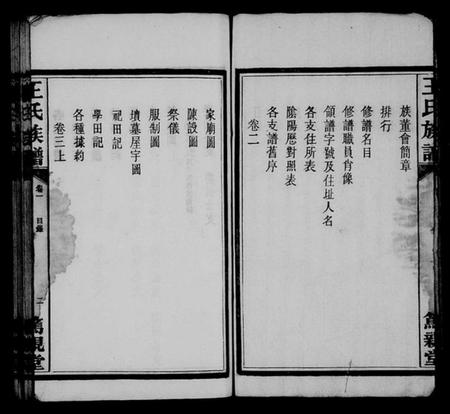 王氏族譜
篤親堂
族董會簡章
排行
修譜名目
修譜職員肖像
領譜字號及住址人名
各支住所表
陰陽歷對照表
各支譜舊序
卷二
家廟圖
陳設圖
祭儀
服制圖
墳墓屋宇圖
祀田記
學田記
各種據約
卷三上
王氏族譜
卷一
目錄
二
篤親堂